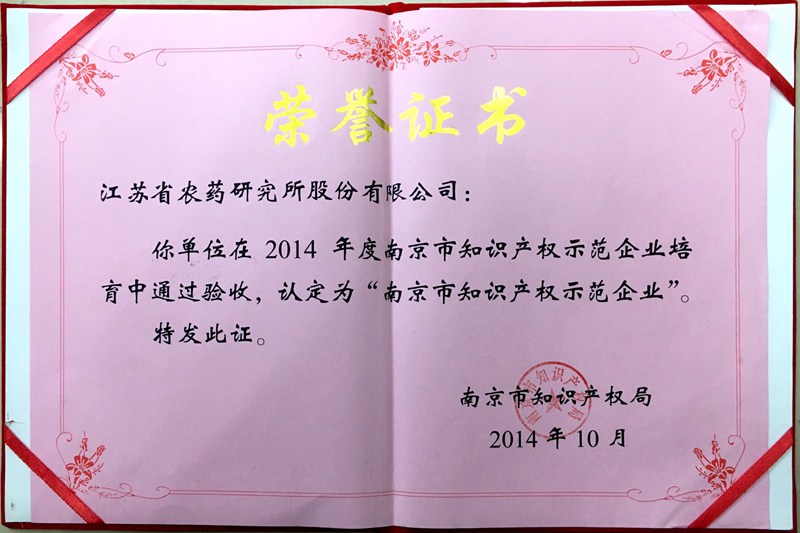 荣誉证书
江苏省农药研究所股份有限公司：
你单位在 2014 年度南京市知识产权示范企业培
育中通过验收，认定为“南京市知识产权示范企业”。
特发此证。
南京市知识产权局
南京市知识产权局
2014 年 10 月